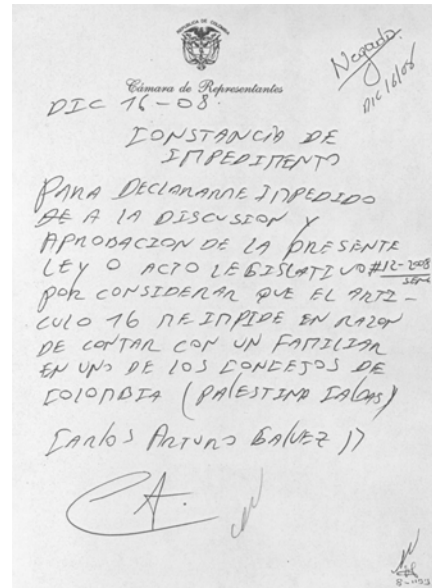 REPUBLICA DE COLOMBIA
Cámara de Representantes
Negado
DIC 16/08
DIC 16-08.
CONSTANCIA DE
IMPEDIMENTO
PARA DECLARARME IMPEDIDO
A LA DISCUSION Y
APROBACION DE LA PRESENTE
LEY O ACTO LEGISLATIVO #12-2008
POR CONSIDERAR QUE EL ARTI-
CULO 16 ME IMPIDE EN RAZON
DE CONTAR CON UN FAMILIAR
EN UNO DE LOS CONCEJOS DE
COLOMBIA (PALESTINA CALDAS)
CARLOS ARTURO GALVEZ